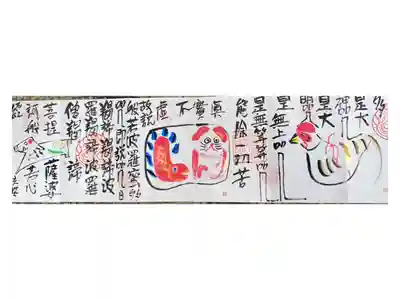 多
是大
神呪
是大
明呪
是無上呪
是無等等呪
能除一切苦
真實不虚
故説
般若波羅蜜多
呪即説呪曰
羯諦羯諦波
羅羯諦波羅
僧羯諦
菩提薩婆
訶般若心
経